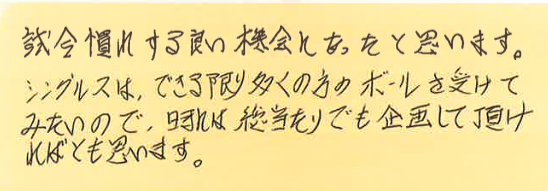 試合慣れする良い機会になったと思います。
シングルスは、できる限り多くの方のボールを受けて
みたいので、時には総当たりでも企画して頂け
ればとも思います。